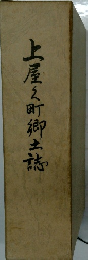 上屋久町郷土誌